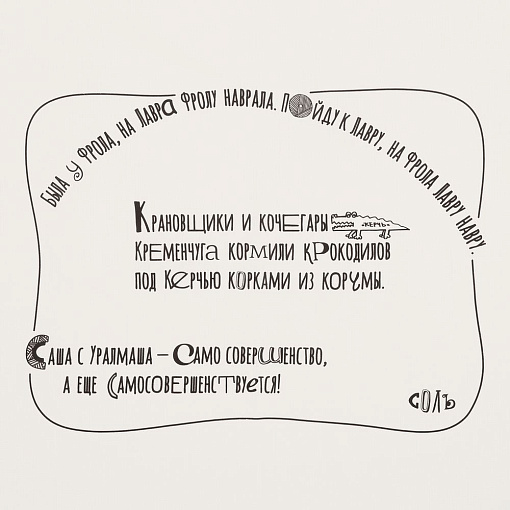 Была у Фрола, на Лавра Фролу наврала. Пойду к Лавру, на Фрола Лавру навру.
Крановщики и кочегары
«КЕРЧЬ»
Кременчуга кормили крокодилов
под Керчью корками из корчмы.
Саша с Уралмаша – само совершенство,
а еще самосовершенствуется!
СОЛЬ